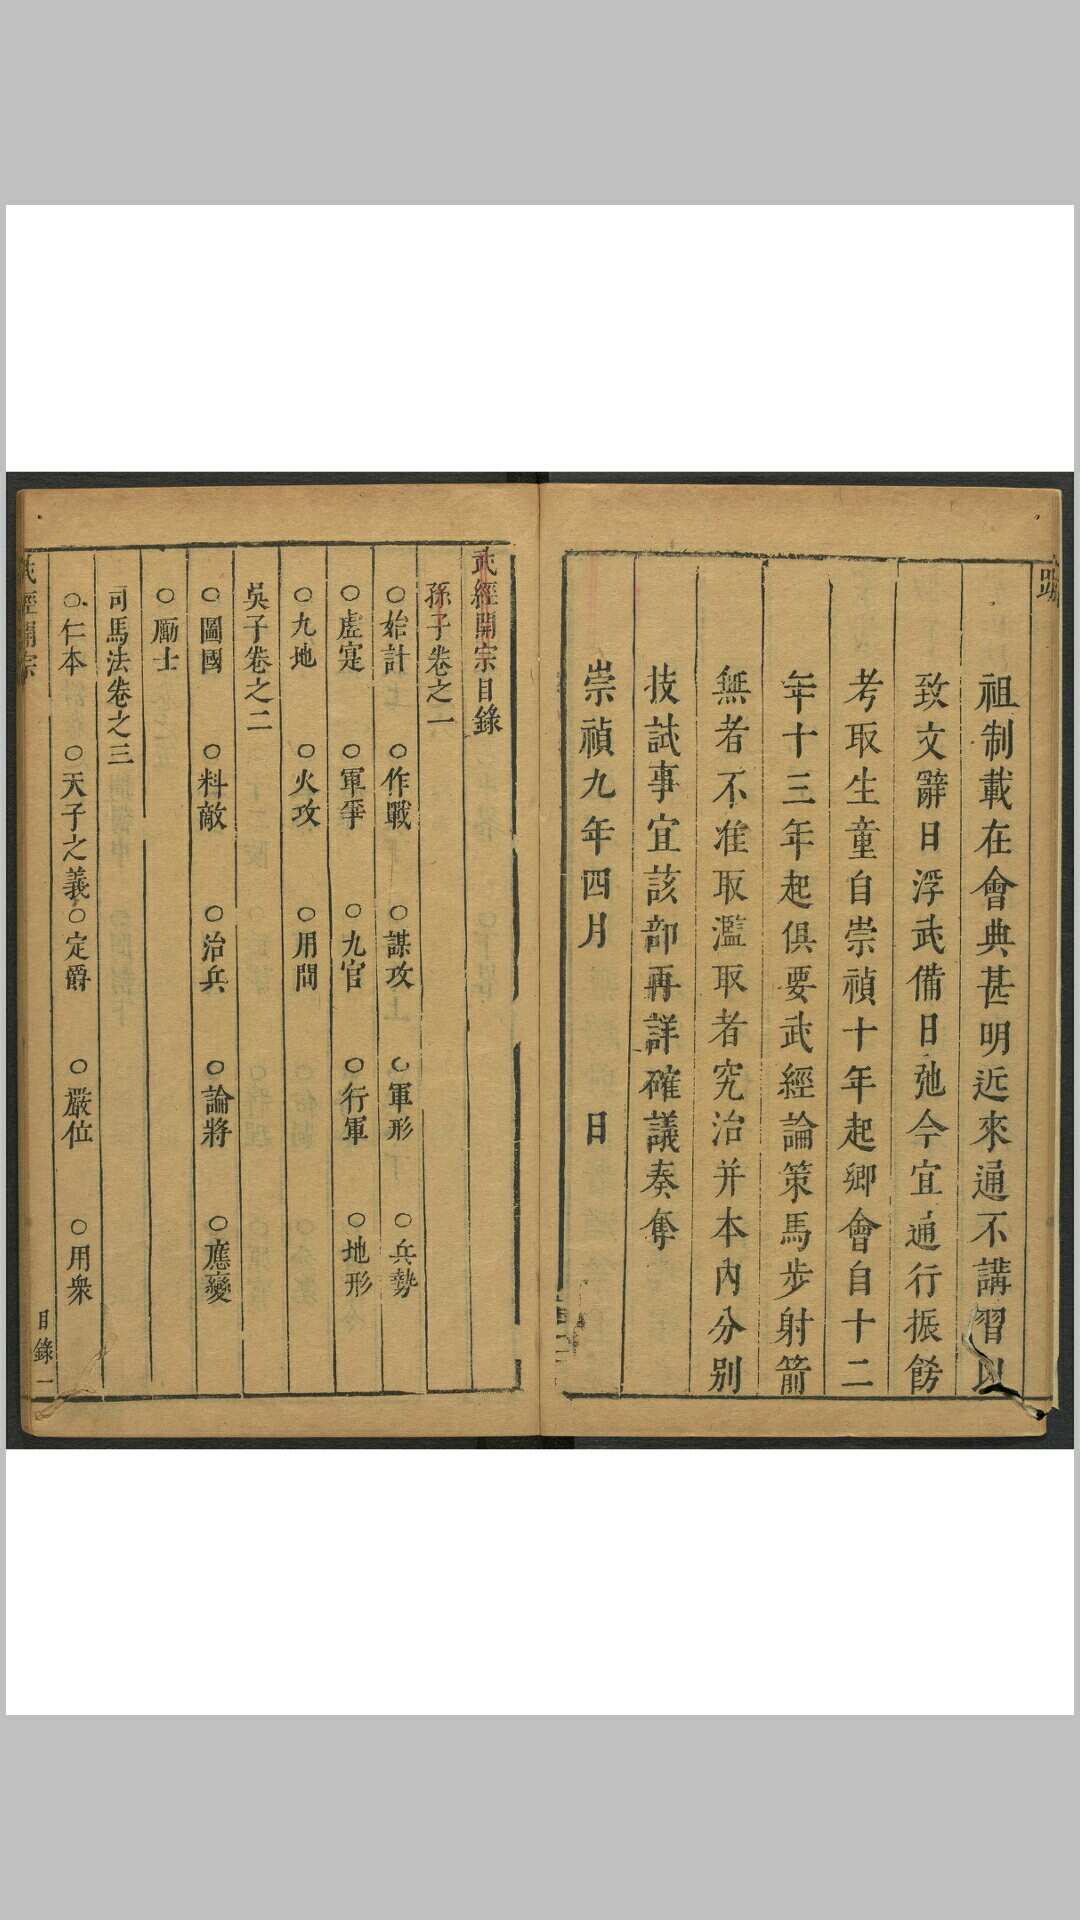 祖制載在會典甚明近來通不講習以
致文辭日浮武備日弛今宜通行振飭
考取生童自崇禎十年起鄉會自十二
年十三年起俱要武經論策馬步射箭
無者不准取濫取者究治并本內分別
技試事宜該部再詳確議奏奪
崇禎九年四月 日
武經開宗目錄
孫子卷之一
○始計 ○作戰 ○謀攻 ○軍形 ○兵勢
○虛寔 ○軍爭 ○九官 ○行軍 ○地形
○九地 ○火攻 ○用間
吳子卷之二
○圖國 ○料敵 ○治兵 ○論將 ○應變
○勵士
司馬法卷之三
○仁本 ○天子之義 ○定爵 ○嚴位 ○用衆
武經開宗 目錄 一